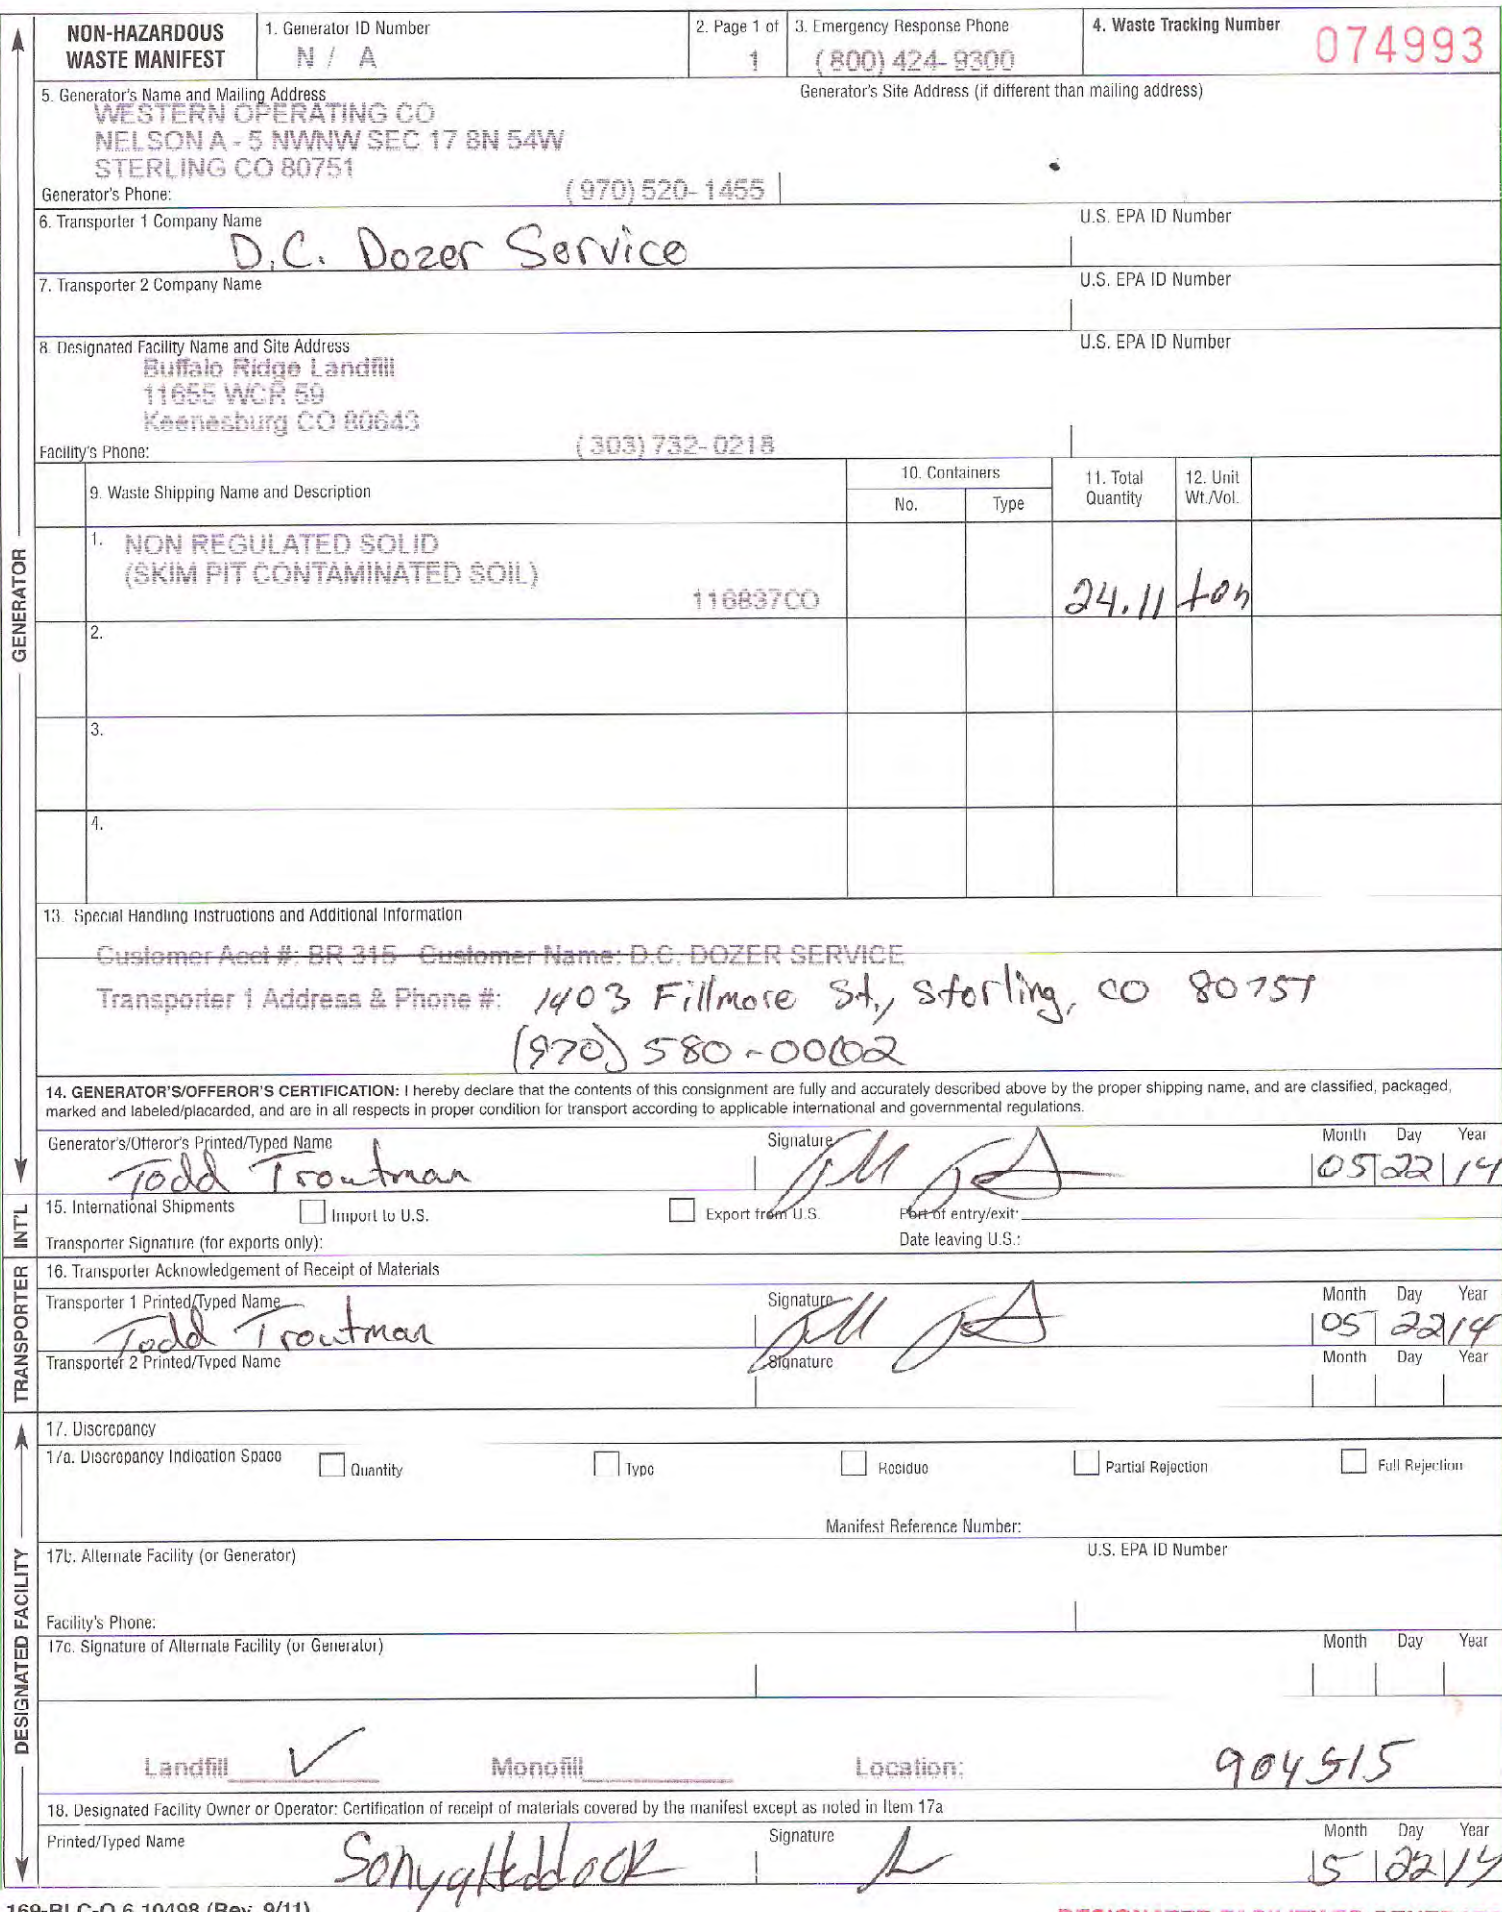 NON-HAZARDOUS WASTE MANIFEST
1. Generator ID Number
N / A
2. Page 1 of
1
3. Emergency Response Phone
(800) 424-9300
4. Waste Tracking Number
074993
5. Generator's Name and Mailing Address
WESTERN OPERATING CO
NELSON A - 5 NWNW SEC 17 8N 54W
STERLING CO 80751
Generator's Phone:
(970) 520-1455
Generator's Site Address (if different than mailing address)
6. Transporter 1 Company Name
D.C. Dozer Service
U.S. EPA ID Number
7. Transporter 2 Company Name
U.S. EPA ID Number
8. Designated Facility Name and Site Address
Buffalo Ridge Landfill
11655 WCR 59
Keenesburg CO 80643
Facility's Phone:
(303) 732-0218
U.S. EPA ID Number
9. Waste Shipping Name and Description
10. Containers
No.
Type
11. Total Quantity
12. Unit Wt./Vol.
1. NON REGULATED SOLID
(SKIM PIT CONTAMINATED SOIL)
116837CO
24.11
ton
2.
3.
4.
13. Special Handling Instructions and Additional Information
Customer Acct #: BR 315 Customer Name: D.C. DOZER SERVICE
Transporter 1 Address & Phone #: 1403 Fillmore St., Sterling, CO 80751
(970) 580-0002
14. GENERATOR'S/OFFEROR'S CERTIFICATION: I hereby declare that the contents of this consignment are fully and accurately described above by the proper shipping name, and are classified, packaged,
marked and labeled/placarded, and are in all respects in proper condition for transport according to applicable international and governmental regulations.
Generator's/Offeror's Printed/Typed Name
Todd Troutman
Signature
Month Day Year
05 22 14
15. International Shipments
Import to U.S.
Export from U.S.
Port of entry/exit:
Transporter Signature (for exports only):
Date leaving U.S.:
16. Transporter Acknowledgement of Receipt of Materials
Transporter 1 Printed/Typed Name
Todd Troutman
Signature
Month Day Year
05 22 14
Transporter 2 Printed/Typed Name
Signature
Month Day Year
17. Discrepancy
17a. Discrepancy Indication Space
Quantity
Type
Residue
Partial Rejection
Full Rejection
Manifest Reference Number:
17b. Alternate Facility (or Generator)
U.S. EPA ID Number
Facility's Phone:
17c. Signature of Alternate Facility (or Generator)
Month Day Year
Landfill ✓ Monofill Location: 904515
18. Designated Facility Owner or Operator: Certification of receipt of materials covered by the manifest except as noted in Item 17a
Printed/Typed Name
Sonya Heddock
Signature
Month Day Year
5 22 14
GENERATOR
INT'L
TRANSPORTER
DESIGNATED FACILITY
169-BLC-O 6 10498 (Rev. 9/11)